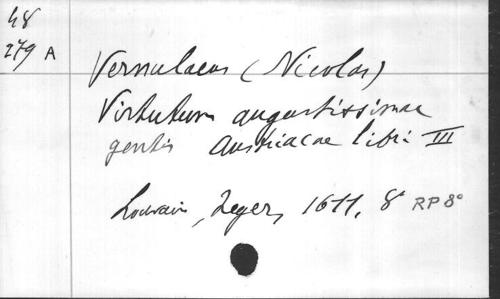 48
279 A
Vernulaeus (Nicolas)
Virtutum augustissimae
gentis Austriacae libri III
Louvain, Zeger, 1611, 8° RP 8°